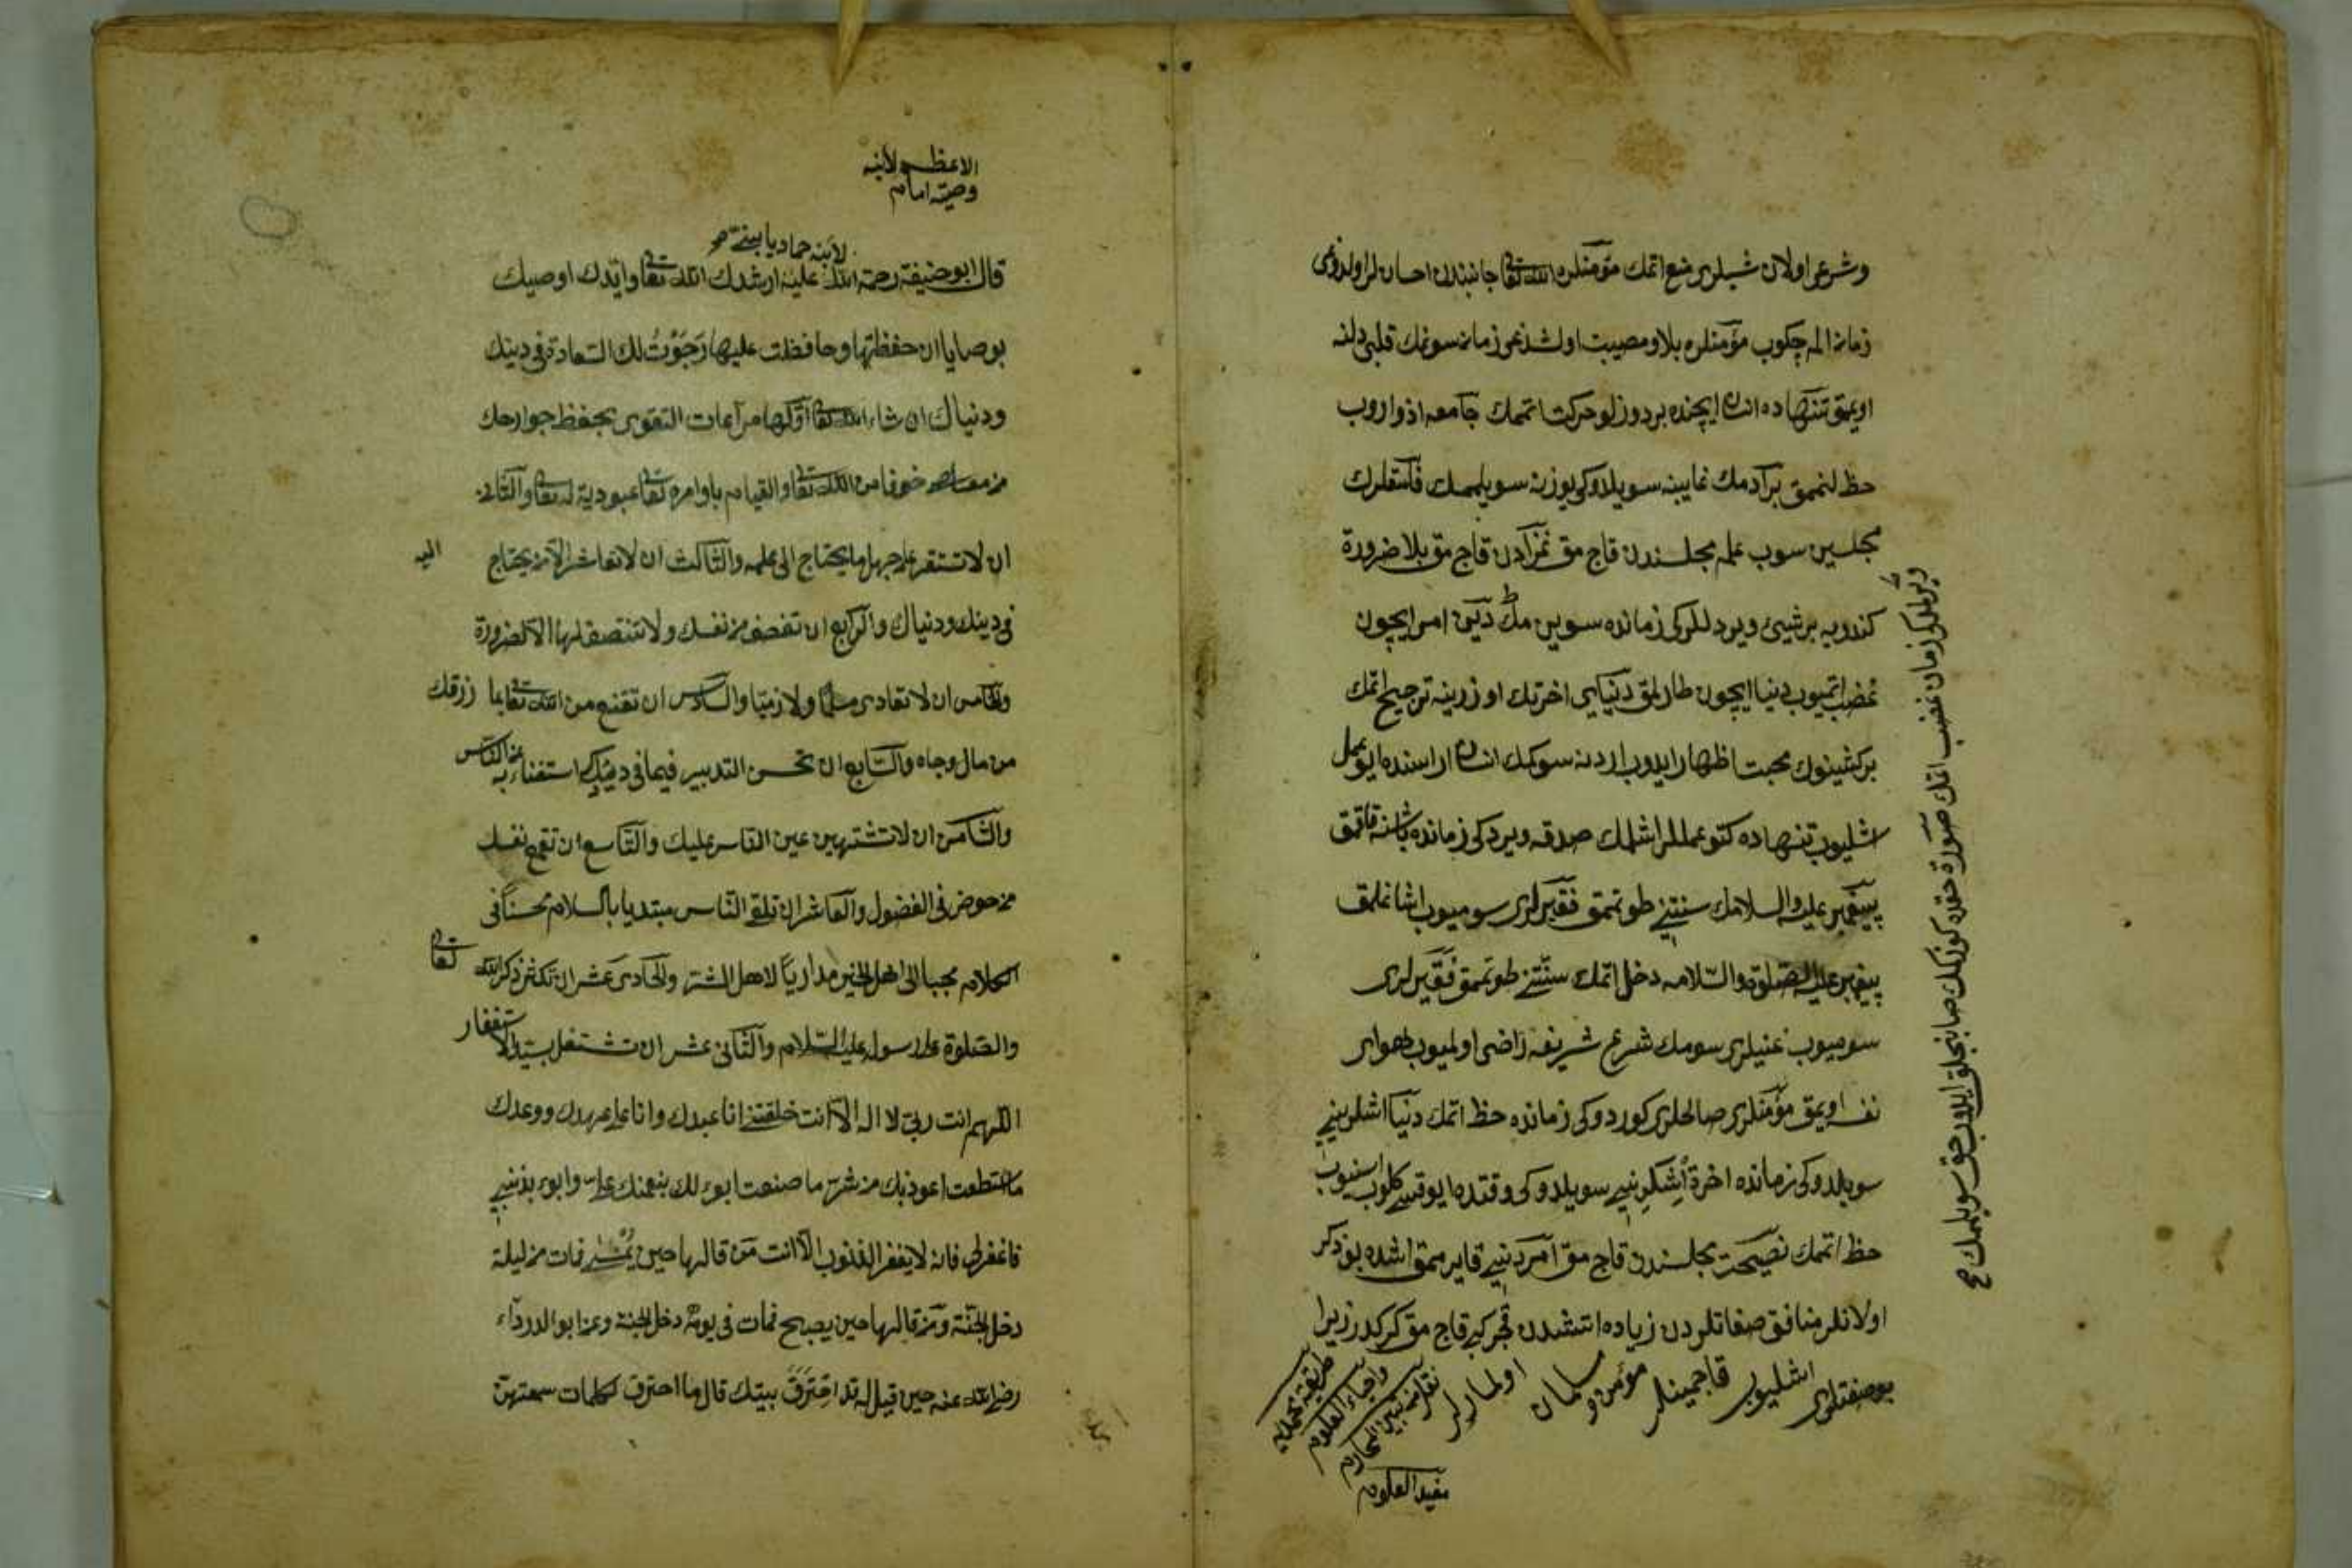 وشرعی اولان شیلری منع اتمك مؤمنلره الله تعالی جانبندن احسانلر اولدوغی
زمانده الم چكوب مؤمنلره بلا ومصیبت اولشدغی زمانده سونمك قلبی دلنه
اویمق تنهاده انسان ایچنده بر دوزلو حركت اتممك جامعه اذوارروب
حظ لنممق بر آدمك غایبنه سویلدوكی یوزینه سویلممك فاسقلرك
مجلسین سوب علم مجلسندن قاچ مق نمازدن قاچ مق بلا ضرورة
كندویه بر شیئ ویردكلری زمانده سوین مك دینی امر ایچون
غضب اتمیوب دنیا ایچون طارلمق دنیایی اخرتك اوزرینه ترجیح اتمك
بر كشینوك محبت اظهار ایدوب اردنه سوكمك انسان اراسنده ایو عمل
اشلیوب تنهاده كتو عمللر اشلمك صدقه ویردكی زمانده باشنه قاقمق
پیغمبر علیه السلامك سنتنی طوتممق فقیرلری سومیوب اشاغلمق
پیغمبر علیه الصلوة والسلامه دخل اتمك سنتنی طوتممق فقیرلری
سومیوب غنیلری سومك شرع شریفه راضی اولمیوب هوای
نفسه اویمق مؤمنلری صالحلری كوردوكی زمانده حظ اتممك دنیا اشلرینی
سویلدوكی زمانده اخرة اشلرینی سویلدوكی وقتده اویوقسی كلوب اسنیوب
حظ اتممك نصیحت مجلسندن قاچ مق آمردینی قایرممق اشده بو ذكر
اولانلر منافق صفاتلردن زیاده اتشدن قچر كبی قاچ مق كركدر زیرا
بو صفتلری اشلیوب قاچمینلر مؤمن و مسلمان اولمازلر
نقل من تبیین المحارم
واحیاء العلوم
طریقة محمدیه
مفید العلوم
ویرملری زمان غضب اتمك صورة حقده كورنمك صانجلق ایلیوب حق سویلممك صح
الاعظم لابنه
وصیة امام
لابنه حماد یا بنی
قال ابو حنیفة رحمة الله علیه ارشدك الله تعالی وایدك اوصیك
بوصایا ان حفظتها وحافظت علیها رَجَوْتُ لك السعادة فی دینك
ودنیاك ان شاء الله تعالی اوّلها مراعات التقوی بحفظ جوارحك
من معاصیه خوفا من الله تعالی والقیام باوامره تعالی عبودیة له تعالی والثانی
ان لا تستقر علی جهل ما یحتاج الی علمه والثالث ان لا تعاشر الا من یحتاج الیه
فی دینك ودنیاك والرابع ان تنصف من نفسك ولا تنتصف لها الا لضرورة
والخامس ان لا تعادی مسلما ولا ذمیا والسادس ان تقنع من الله تعالی بما رزقك
من مال وجاه والسابع ان تحسن التدبیر فیما فی دیك استغناء به عن الناس
والثامن ان لا تستهین عین الناس علیك والتاسع ان تقمع نفسك
من خوض فی الفضول والعاشر ان تلقی الناس مبتدیا بالسلام محسنا فی
الكلام محببا الی اهل الخیر مداریا لاهل الشر والحادی عشر ان تكثر ذكر الله تعالی
والصلوة علی رسوله علیه السلام والثانی عشر ان تشتغل بسید الاستغفار
اللهم انت ربی لا اله الا انت خلقتنی انا عبدك وانا علی عهدك ووعدك
ما استطعت اعوذ بك من شر ما صنعت ابوء لك بنعمتك علی وابوء بذنبی
فاغفر لی فانه لا یغفر الذنوب الا انت مَن قالها حین یمسی فمات من لیلة
دخل الجنة ومن قالها حین یصبح فمات فی یومه دخل الجنة وعن ابو الدرداء
رضی الله عنه حین قیل له قد احترق بیتك قال ما احترق لكلمات سمعتهن